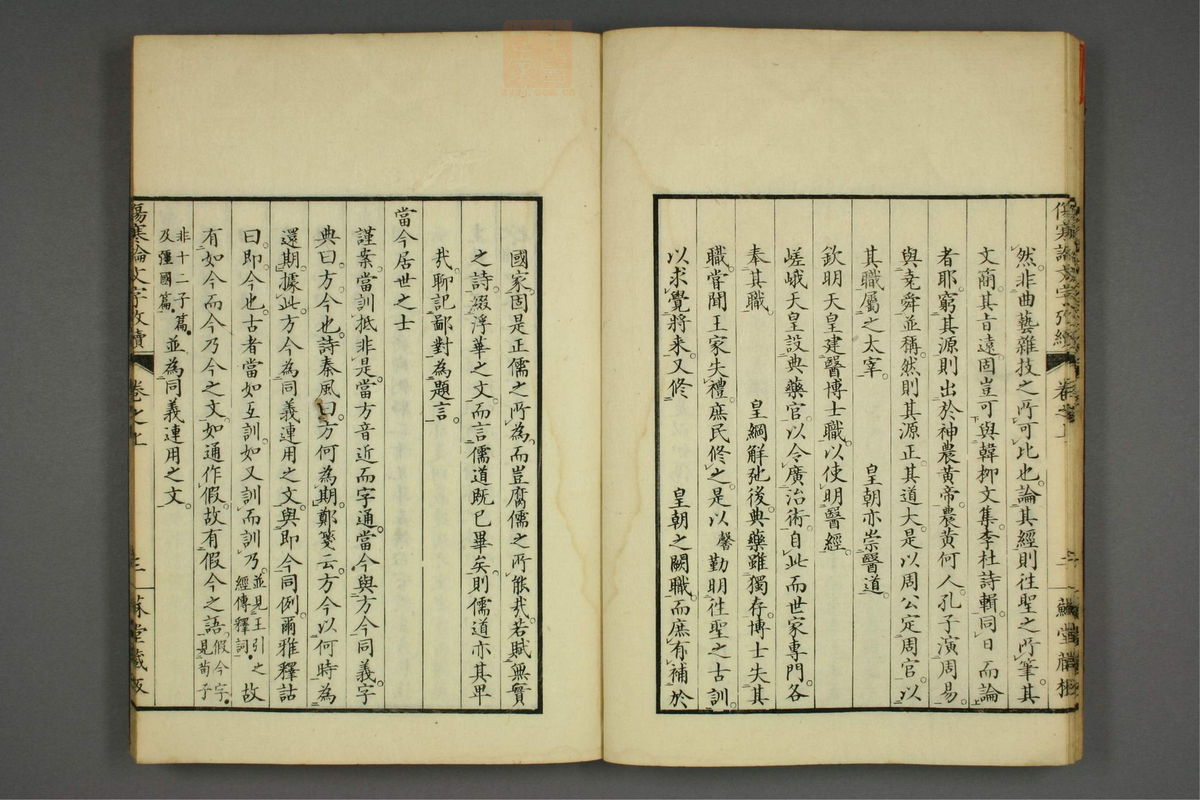 然非曲藝雜技之所可比也論其經則往聖之所筆其
文簡其旨遠固豈可與韓柳文集李杜詩輯同日而論
者耶窮其源則出於神農黃帝農黃何人孔子演周易
與堯舜並稱然則其源正其道大是以周公定周官以
其職屬之太宰　皇朝亦崇醫道
欽明天皇建醫博士職以使明醫經
嵯峨天皇設典藥官以令廣治術自此而世家專門各
奉其職　皇綱解弛後典藥雖獨存博士失其
職嘗聞王家失禮庶民修之是以馨勤明往聖之古訓
以求覺將來又修　皇朝之闕職而庶有補於
國家固是正儒之所為而豈腐儒之所能哉若賦無實
之詩綴浮華之文而言儒道既已畢矣則儒道亦其卑
哉聊記鄙對為題言
當今居世之士
謹案當訓抵非是當方音近而字通當今與方今同義字
典曰方今也詩秦風曰方何為期鄭箋云方今以何時為
還期據此方今為同義連用之文與即今同例爾雅釋詁
曰即今也古者當如互訓如又訓而訓乃並見王引之經傳釋詞故
有如今而今乃今之文如通作假故有假今之語假今字見荀子
非十二子篇及彊國篇並為同義連用之文
傷寒論文字攷續
卷之上
三
蘇堂藏板